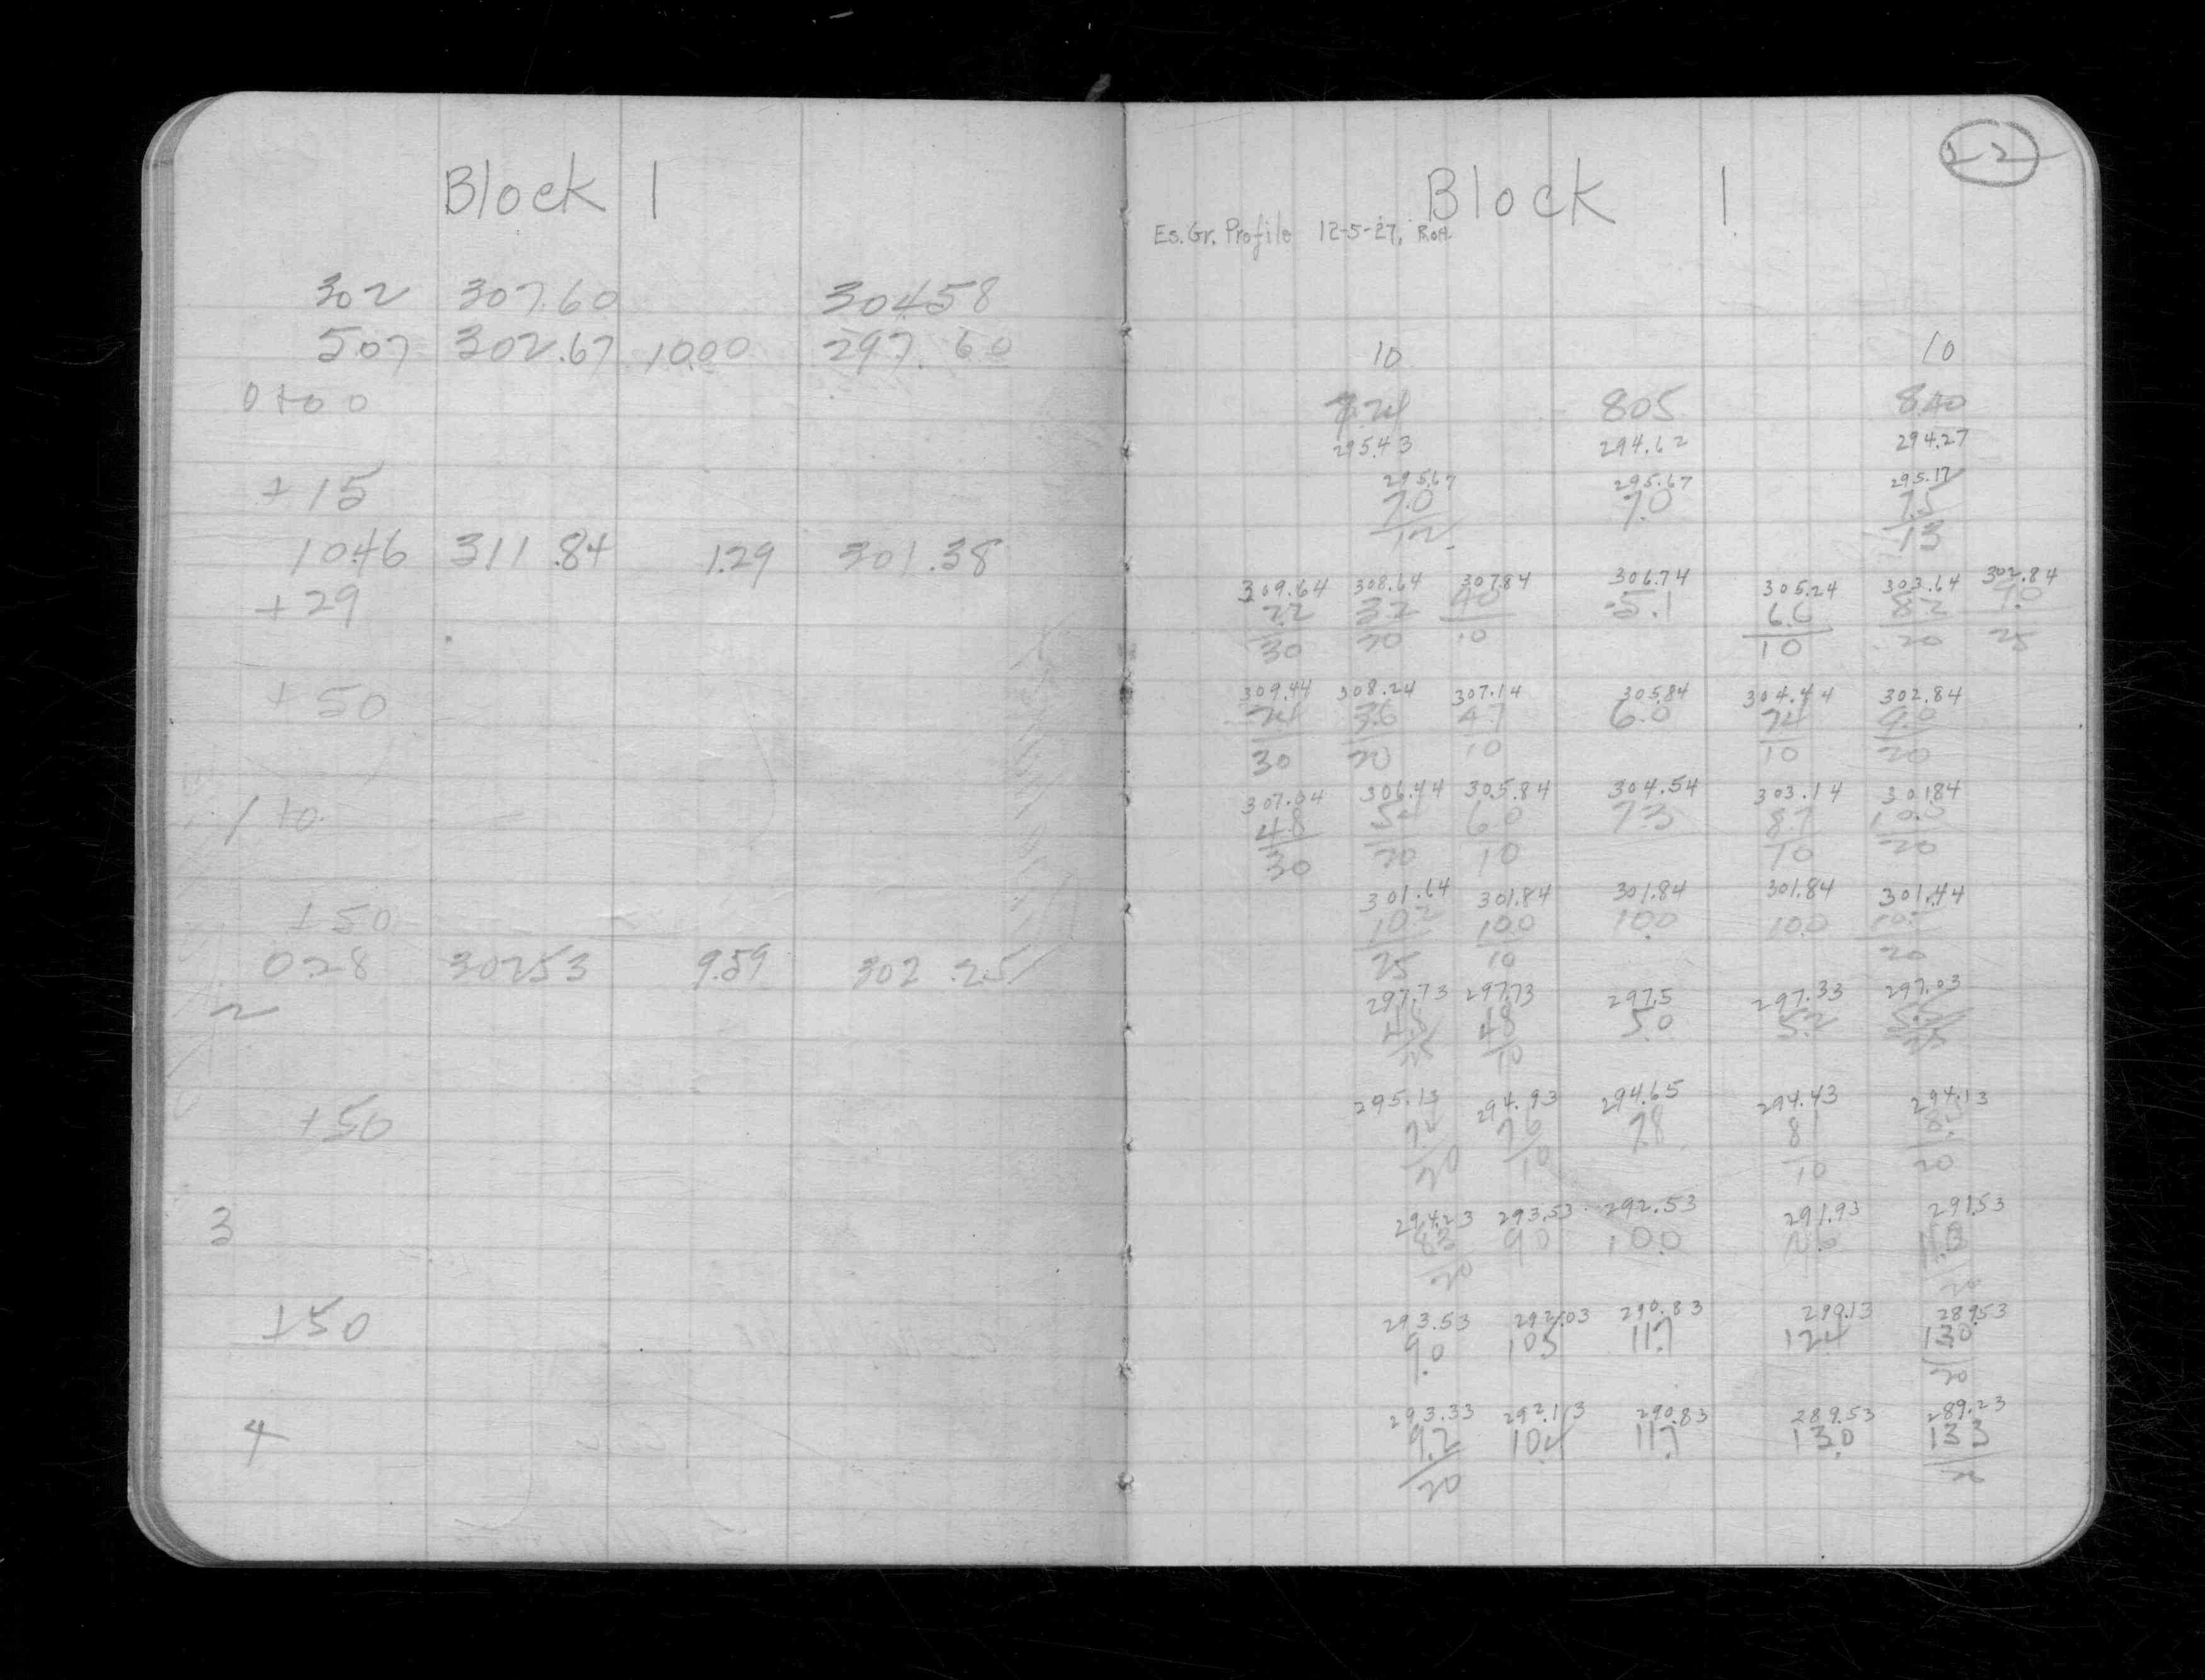 Block 1
302 307.60 304.58
507 302.67 10.00 297.60
0+00
+15
10.46 311.84 1.29 301.38
+29
+50
1+0
+50
0.28 302.53 9.59 302.25
2
+50
3
+50
4
22
Block 1
Es. Gr. Profile 12-5-27,
10 10
7.24 805 8.40
295.43 294.62 294.27
295.67 295.67 295.17
7.0 7.0 7.5
12 13
309.64 308.64 307.84 306.74 305.24 303.64 302.84
2.2 3.2 4.0 5.1 6.6 8.2 9.0
30 20 10 10 20 25
309.44 308.24 307.14 305.84 304.44 302.84
2.4 3.6 4.7 6.0 7.4 9.0
30 20 10 10 20
307.04 306.44 305.84 304.54 303.14 301.84
4.8 5.4 6.0 7.3 8.7 10.0
30 20 10 10 20
301.64 301.84 301.84 301.84 301.44
10.2 10.0 10.0 10.0
25 10 20
297.73 297.73 297.5 297.33 297.03
4.8 4.8 5.0 5.2 5.5
10
295.13 294.93 294.65 294.43 294.13
7.4 7.6 7.8 8.1
20 10 10 20
294.23 293.53 292.53 291.93 291.53
8.3 9.0 10.0 11.0
20 20
293.53 292.03 290.83 290.13 289.53
9.0 10.5 11.7 12.4 13.0
20
293.33 292.13 290.83 289.53 289.23
9.2 10.4 11.7 13.0 13.3
20